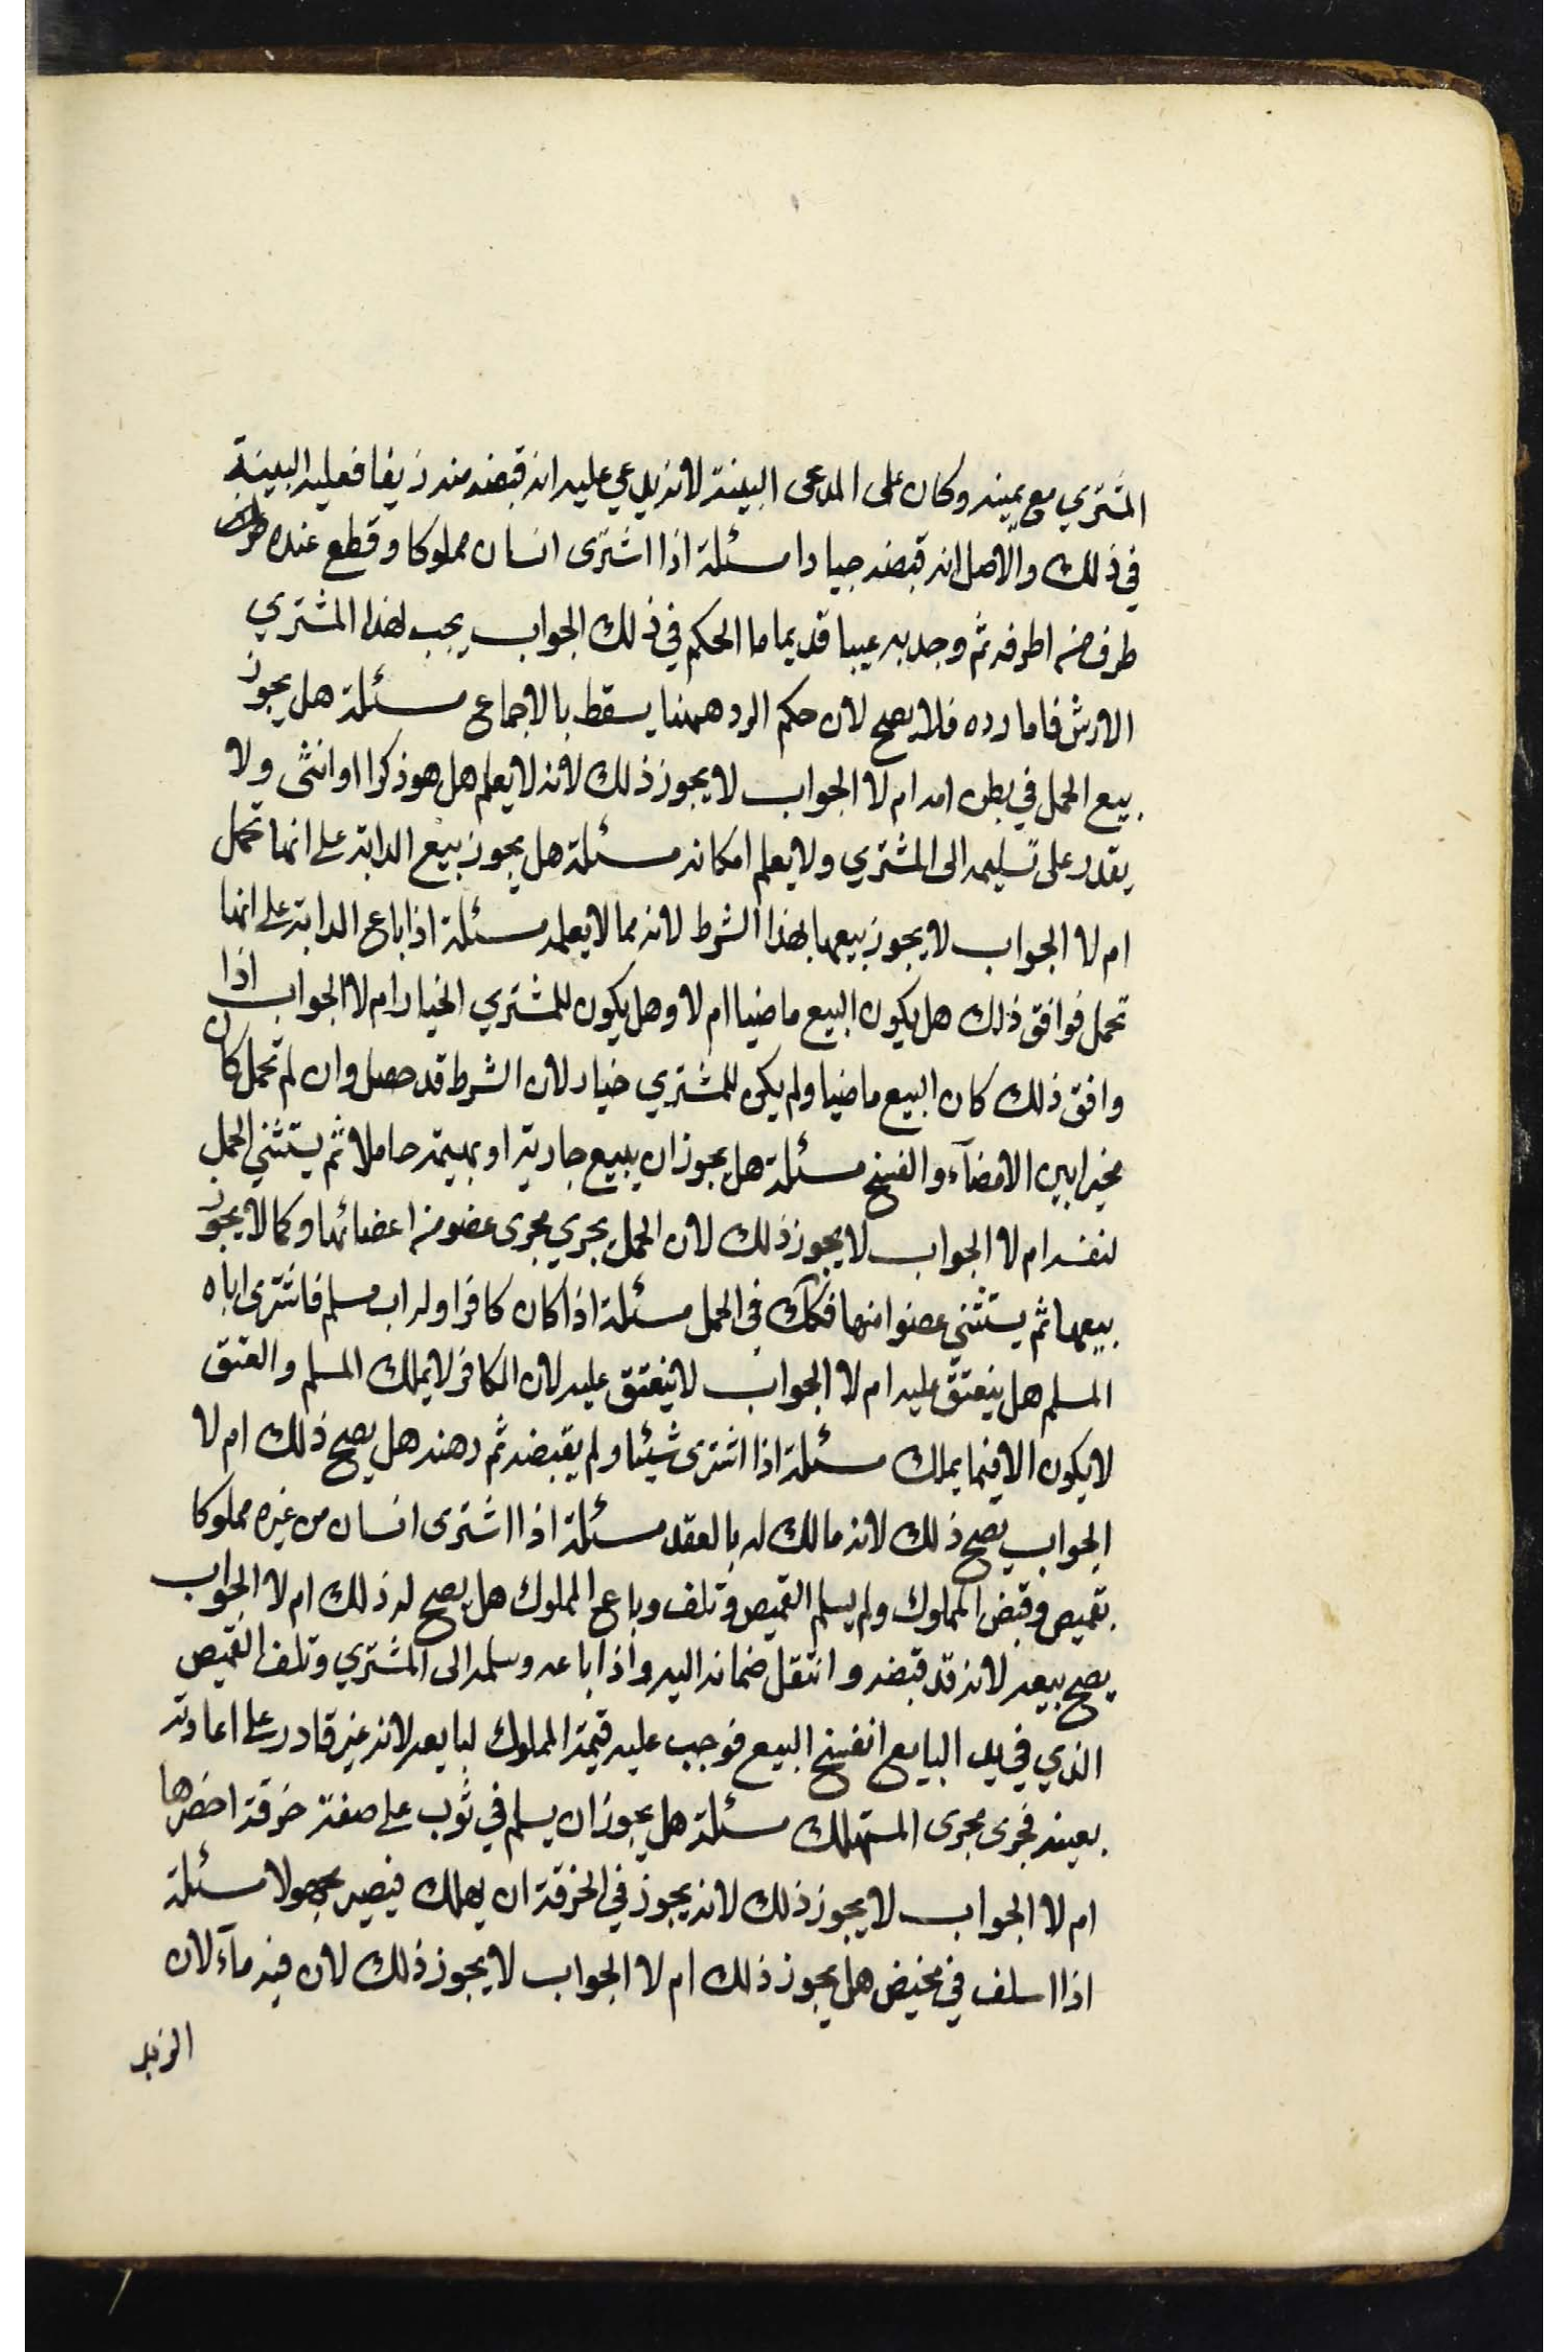 المشتري مع يمينه وكان على المدعى البينة لانه يدعي عليه انه قبضه منه زيفا فعليه البينة
في ذلك والاصل انه قبضه جيادا مسئلة اذا اشترى انسان مملوكا وقطع عنده
طرف من اطرفه ثم وجد به عيبا قديما ما الحكم في ذلك الجواب يجب لهذا المشتري
الارش فاما رده فلا يصح لان حكم الرد ههنا يسقط بالاجماع مسئلة هل يجوز
بيع الحمل في بطن امه ام لا الجواب لا يجوز ذلك لانه لا يعلم هل هو ذكرا او انثى ولا
يقدر على تسليمه الى المشتري ولا يعلم امكانه مسئلة هل يجوز بيع الدابة على انها تحمل
ام لا الجواب لا يجوز بيعها بهذا الشرط لانه مما لا يعلمه مسئلة اذا باع الدابة على انها
تحمل فوافق ذلك هل يكون البيع ماضيا ام لا وهل يكون للمشتري الخيار ام لا الجواب اذا
وافق ذلك كان البيع ماضيا ولم يكن للمشتري خيار لان الشرط قد حصل وان لم تحمل كان
مخيرا بين الامضآء والفسخ مسئلة هل يجوز ان يبيع جارية او بهيمة حاملا ثم يستثني الحمل
لنفسه ام لا الجواب لا يجوز ذلك لان الحمل يجري مجرى عضو من اعضائها وكما لا يجوز
بيعها ثم يستثني عضوا منها فكك في الحمل مسئلة اذا كان كافرا وله اب مسلم فاشترى اباه
المسلم هل ينعتق عليه ام لا الجواب لا ينعتق عليه لان الكافر لا يملك المسلم والعتق
لا يكون الا فيما يملك مسئلة اذا اشترى شيئا ولم يقبضه ثم رهنه هل يصح ذلك ام لا
الجواب يصح ذلك لانه مالك له بالعقد مسئلة اذا اشترى انسان من غيره مملوكا
بقميص وقبض المملوك ولم يسلم القميص وتلف وباع المملوك هل يصح له ذلك ام لا الجواب
يصح بيعه لانه قد قبضه وانتقل ضمانه اليه واذا باعه وسلمه الى المشتري وتلف القميص
الذي في يد البايع انفسخ البيع فوجب عليه قيمة المملوك لبايعه لانه غير قادر على اعادته
بعينه فجرى مجرى المستهلك مسئلة هل يجوز ان يسلم في ثوب على صفة خرقة احضرها
ام لا الجواب لا يجوز ذلك لانه يجوز في الخرقة ان يهلك فيصير مجهولا مسئلة
اذا اسلف في مخيض هل يجوز ذلك ام لا الجواب لا يجوز ذلك لان فيه مآء لان
الزبد